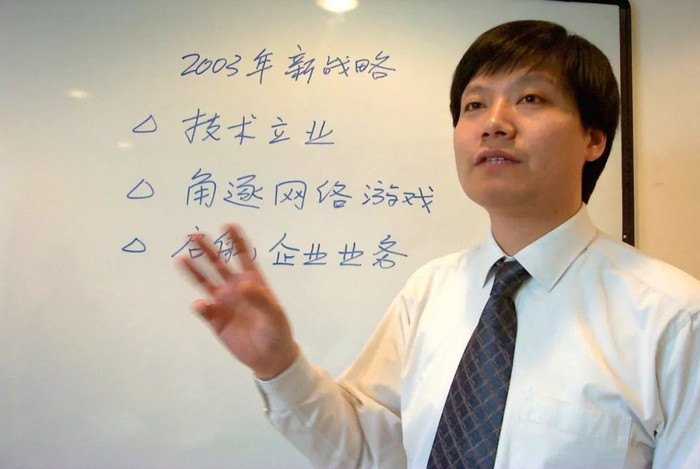 2003年新战略
△ 技术立业
△ 角逐网络游戏
△ 启航企业业务